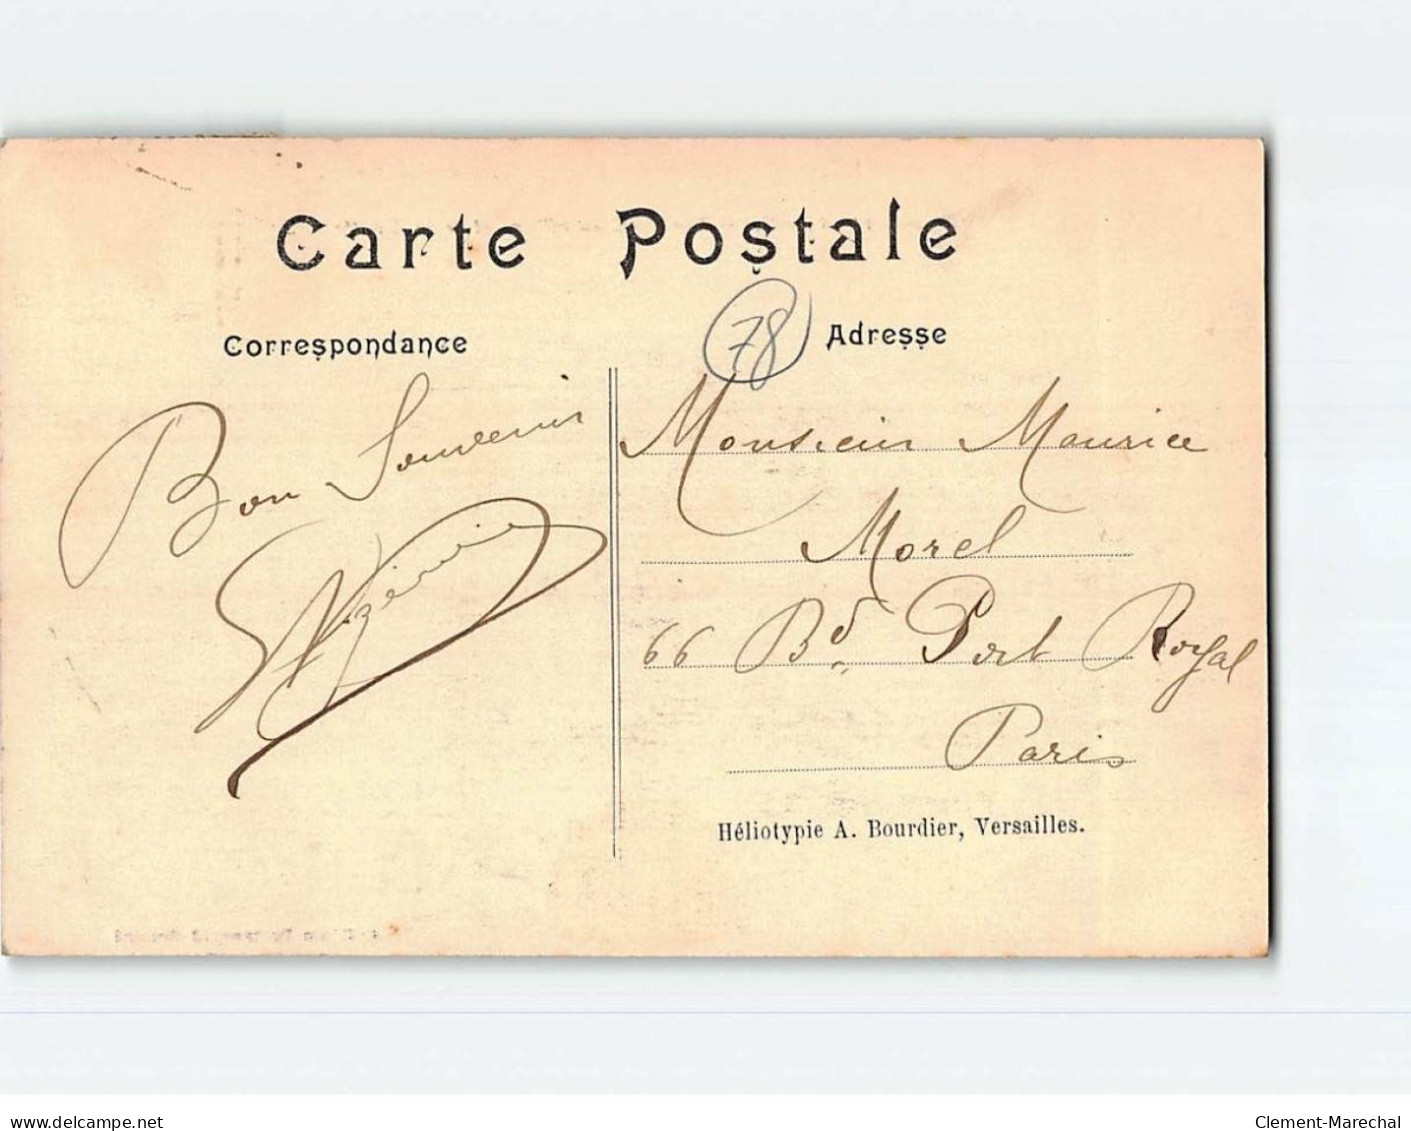 Carte Postale
Correspondance
78
Adresse
Bon Souvenir
Monsieur Maurice
Morel
66 Bd Port Royal
Paris
Héliotypie A. Bourdier, Versailles.
www.delcampe.net
Clement-Marechal